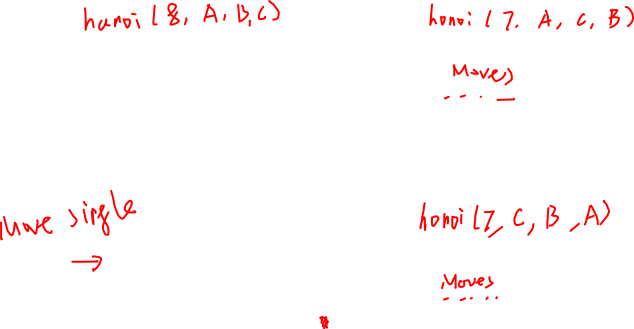 hanoi (8, A, B, C)
hanoi (7. A, C, B)
Moves
Move single
→
hanoi (7, C, B, A)
Moves